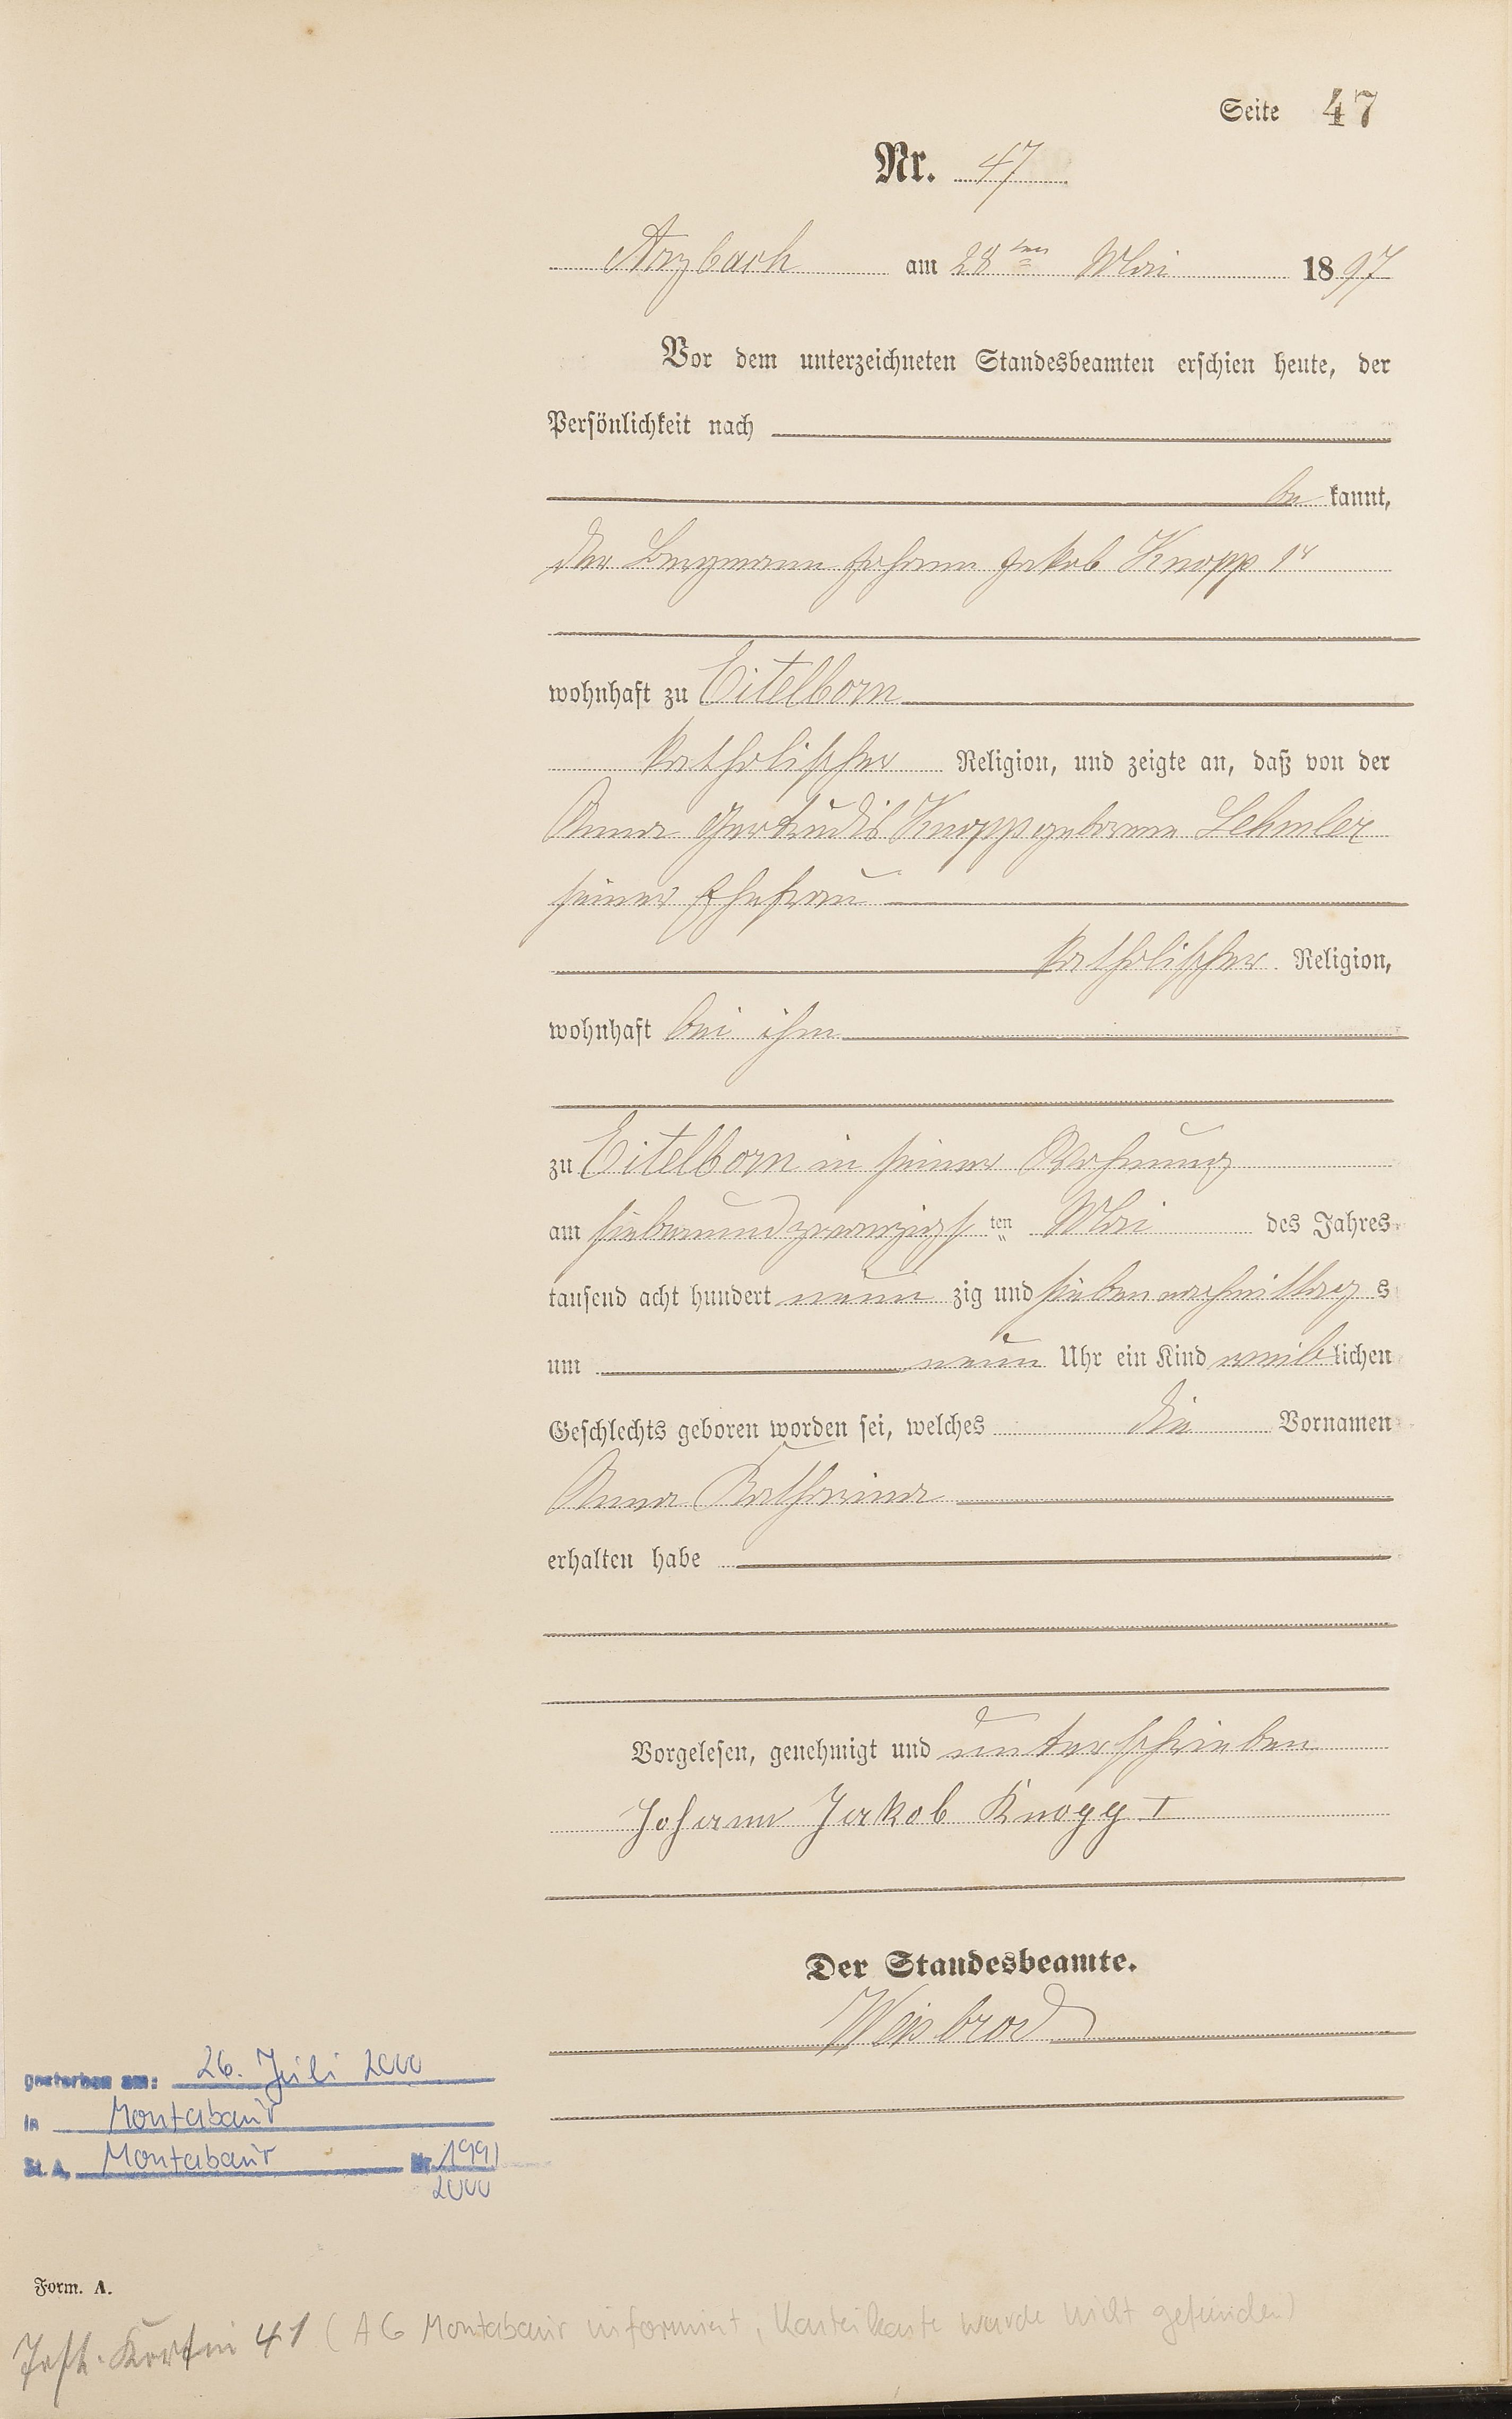 Seite 47
Nr. 47
Arzbach am 28ten Mai 1897
Vor dem unterzeichneten Standesbeamten erschien heute, der
Persönlichkeit nach
be kannt,
der Bergmann Johann Jakob Knopp 1r
wohnhaft zu Eitelborn
katholischer Religion, und zeigte an, daß von der
Anna Gertrudis Knopp geborene Lehmler
seiner Ehefrau
katholischer Religion,
wohnhaft bei ihm
zu Eitelborn in seiner Wohnung
am siebenundzwanzigsten Mai des Jahres
tausend acht hundert neun zig und sieben nachmittags
um neun Uhr ein Kind weiblichen
Geschlechts geboren worden sei, welches die Vornamen
Anna Katharina
erhalten habe
Vorgelesen, genehmigt und unterschrieben
Johann Jakob Knopp I
Der Standesbeamte.
Weisbrod
gestorben am: 26. Juli 2000
in Montabaur
St. A. Montabaur Nr. 199/
2000
Form. A.
41 (AG Montabaur informiert, Karteikarte wurde nicht gefunden)